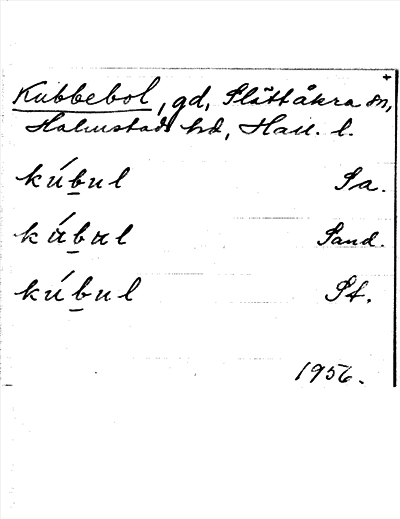 +
Kubbebol, gd, Slättåkra sn,
Halmstads hd, Hall. l.
kúb̲ul Sa.
kúb̲ul Sand.
kúb̲ul St.
1956.